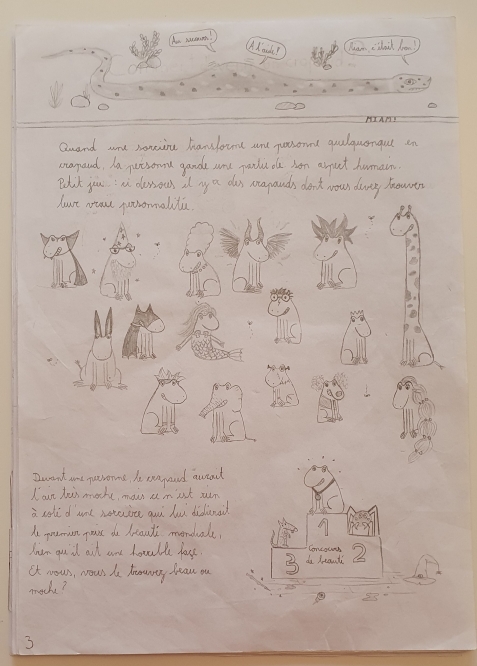 Au secours!
A l'aide!
Miam, c'était bon!
MIAM!
Quand une sorcière transforme une personne quelquonque en
crapaud, la personne garde une partie de son aspect humain.
Petit jeu : ci dessous il y a des crapauds dont vous devez trouver
leur vraie personnalitée.
Devant une personne le crapaud aurait
l'air très moche, mais ce n'est rien
à coté d'une sorcière qui lui
le premier prix de beauté mondiale,
bien qu'il ait une horrible façe.
Et vous, vous le trouvez beau ou
moche?
1
2
3
Concours
de beauté
3